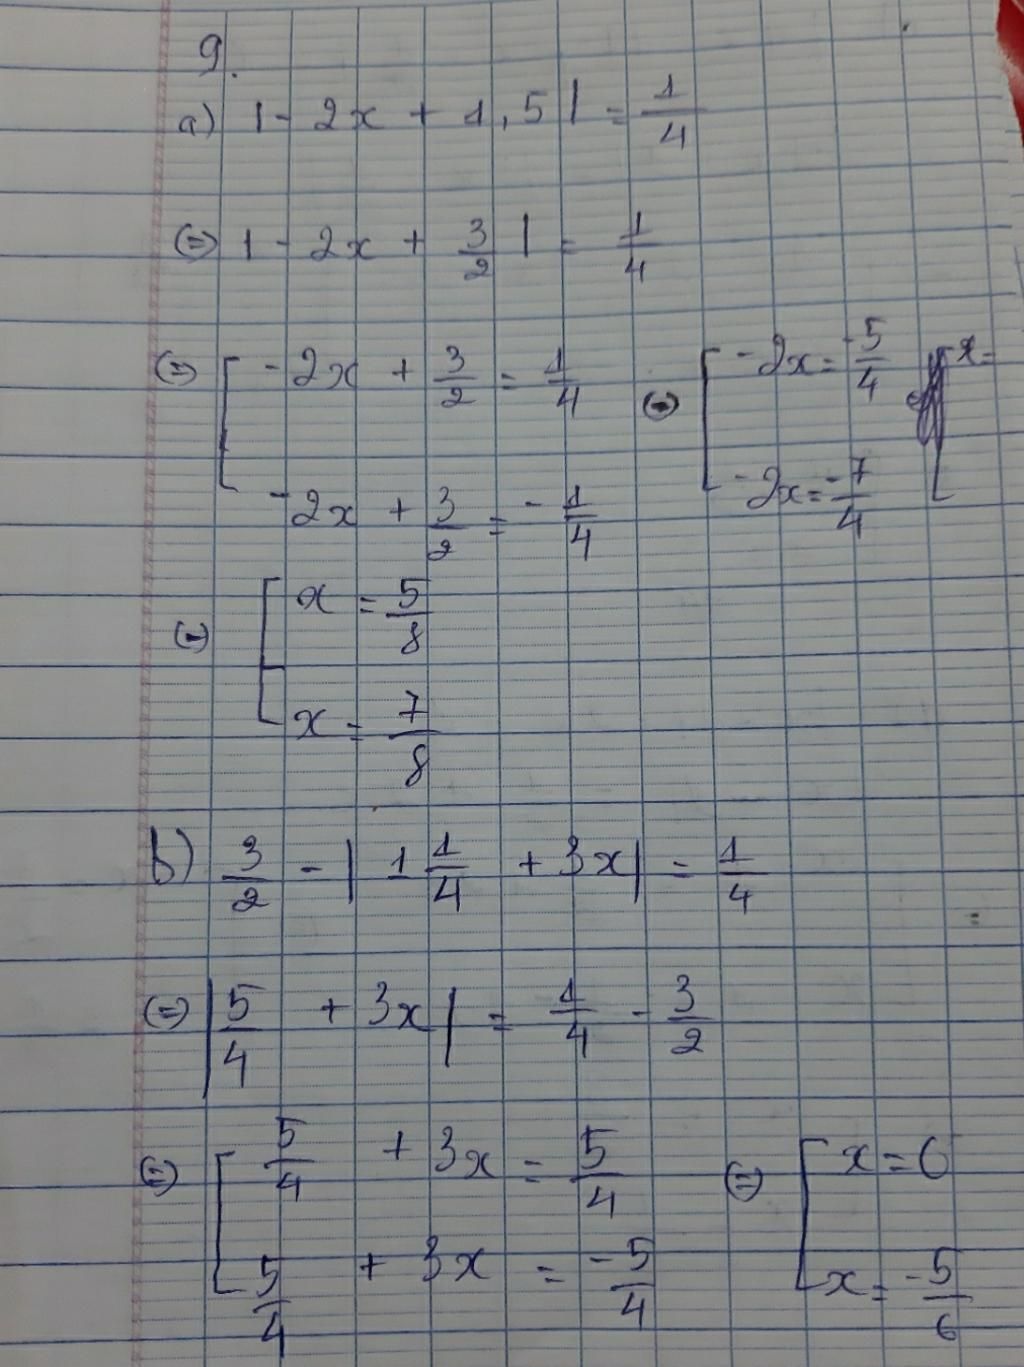 9.
a) |-2x + 1,5| = 1/4
(=) |-2x + 3/2| = 1/4
(=) [ -2x + 3/2 = 1/4 (=) [ -2x = -5/4 [ x =
-2x + 3/2 = -1/4 -2x = -7/4
(=) [ x = 5/8
x = 7/8
b) 3/2 - |1 1/4 + 3x| = 1/4
(=) |5/4 + 3x| = 1/4 - 3/2
(=) [ 5/4 + 3x = 5/4 (=) [ x = 0
5/4 + 3x = -5/4 x = -5/6